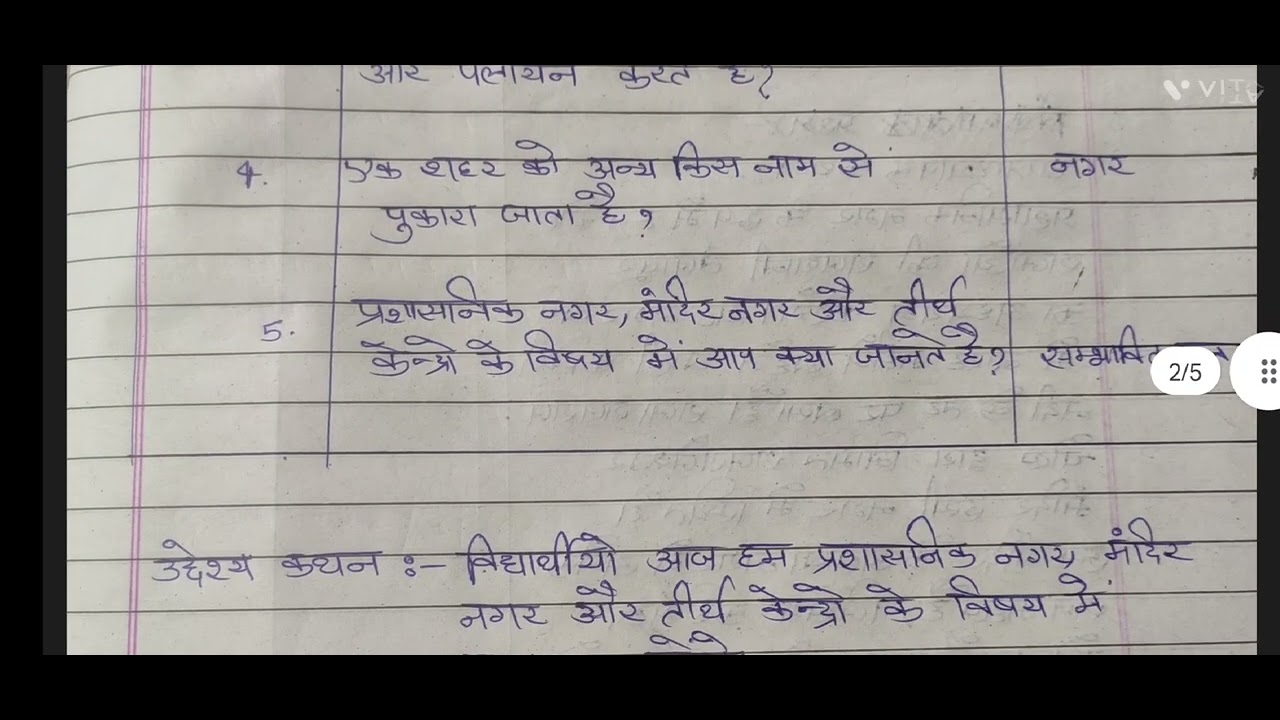 और पलायन करते है?
4. एक शहर को अन्य किस नाम से नगर
पुकारा जाता है?
5. प्रशासनिक नगर, मंदिर नगर और तीर्थ
केन्द्रो के विषय में आप क्या जानते है? सम्भावित
2/5
उद्देश्य कथन :- विद्यार्थीयो आज हम प्रशासनिक नगर, मंदिर
नगर और तीर्थ केन्द्रो के विषय में
VITA